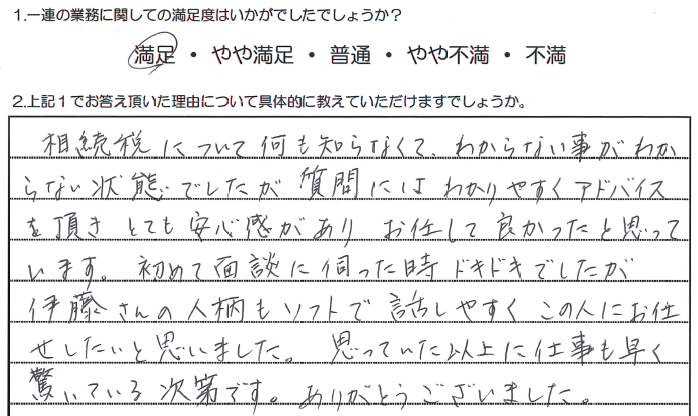 1.一連の業務に関しての満足度はいかがでしたでしょうか？
満足 ・ やや満足 ・ 普通 ・ やや不満 ・ 不満
2.上記１でお答え頂いた理由について具体的に教えていただけますでしょうか。
相続税について何も知らなくて、わからない事がわか
らない状態でしたが 質問にはわかりやすくアドバイス
を頂き とても安心感があり お任して良かったと思って
います。 初めて面談に伺った時ドキドキでしたが
伊藤さんの人柄もソフトで話しやすく この人にお任
せしたいと思いました。 思っていた以上に仕事も早く
驚いている次第です。ありがとうございました。